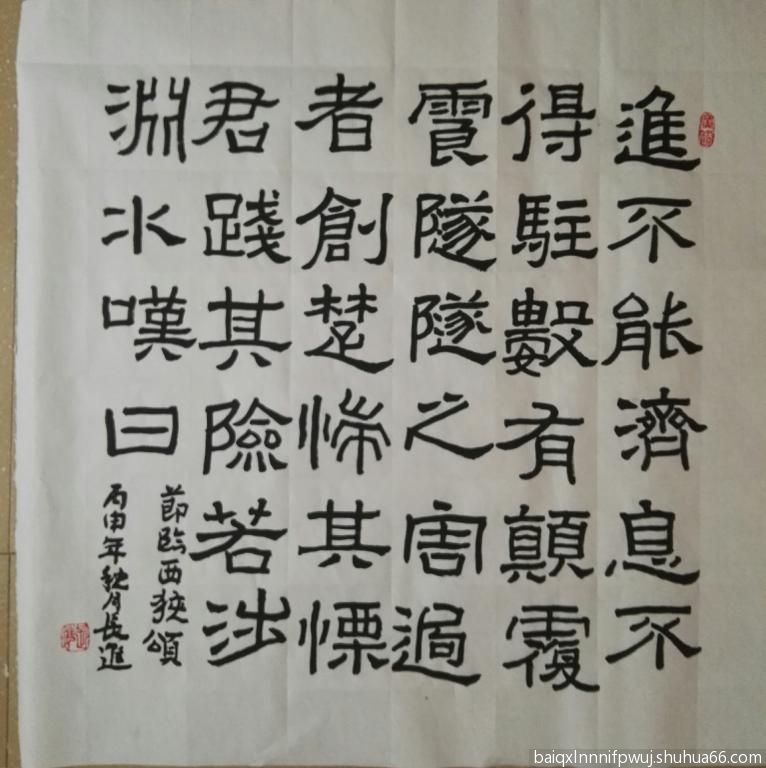 進不能濟息不
得駐數有顛覆
霣隧隧之害過
者創楚惴其慄
君踐其險若涉
淵水嘆曰
節臨西狹頌
丙申年秋月長進
baiqxlnnnifpwuj.shuhua66.com